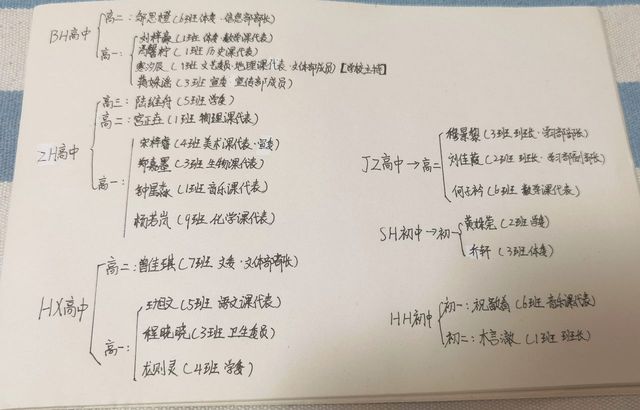 BH高中
高二：邹思嫒（6班体委·信息部部长）
高一：
刘梓淼（1班 体委·数学课代表）
冯馨柠（1班 历史课代表）
寒汐辰（13班 文艺委员·地理课代表·文体部成员）【学校主持】
蒋婉遥（3班 宣委·宣传部成员）
ZH高中
高三：陆继舟（5班 学委）
高二：宫正垚（1班 物理课代表）
高一：
宋梓睿（4班 美术课代表·宣委）
郑嘉墨（3班 生物课代表）
舒星淼（1班 音乐课代表）
杨若岚（9班 化学课代表）
HX高中
高二：曾佳琪（7班 文委·文体部部长）
高一：
（5班 语文课代表）
程晓晓（3班 卫生委员）
龙则灵（4班 学委）
JZ高中→高二
穆景黎（3班 班长·学习部部长）
刘佳霞（2班 班长·学习部副部长）
何衿（6班 数学课代表）
SH初中→初一
黄婉莞（2班 学委）
乔轩（3班 体委）
HH初中
初一：祝敏（6班 音乐课代表）
初二：木言澈（1班 班长）